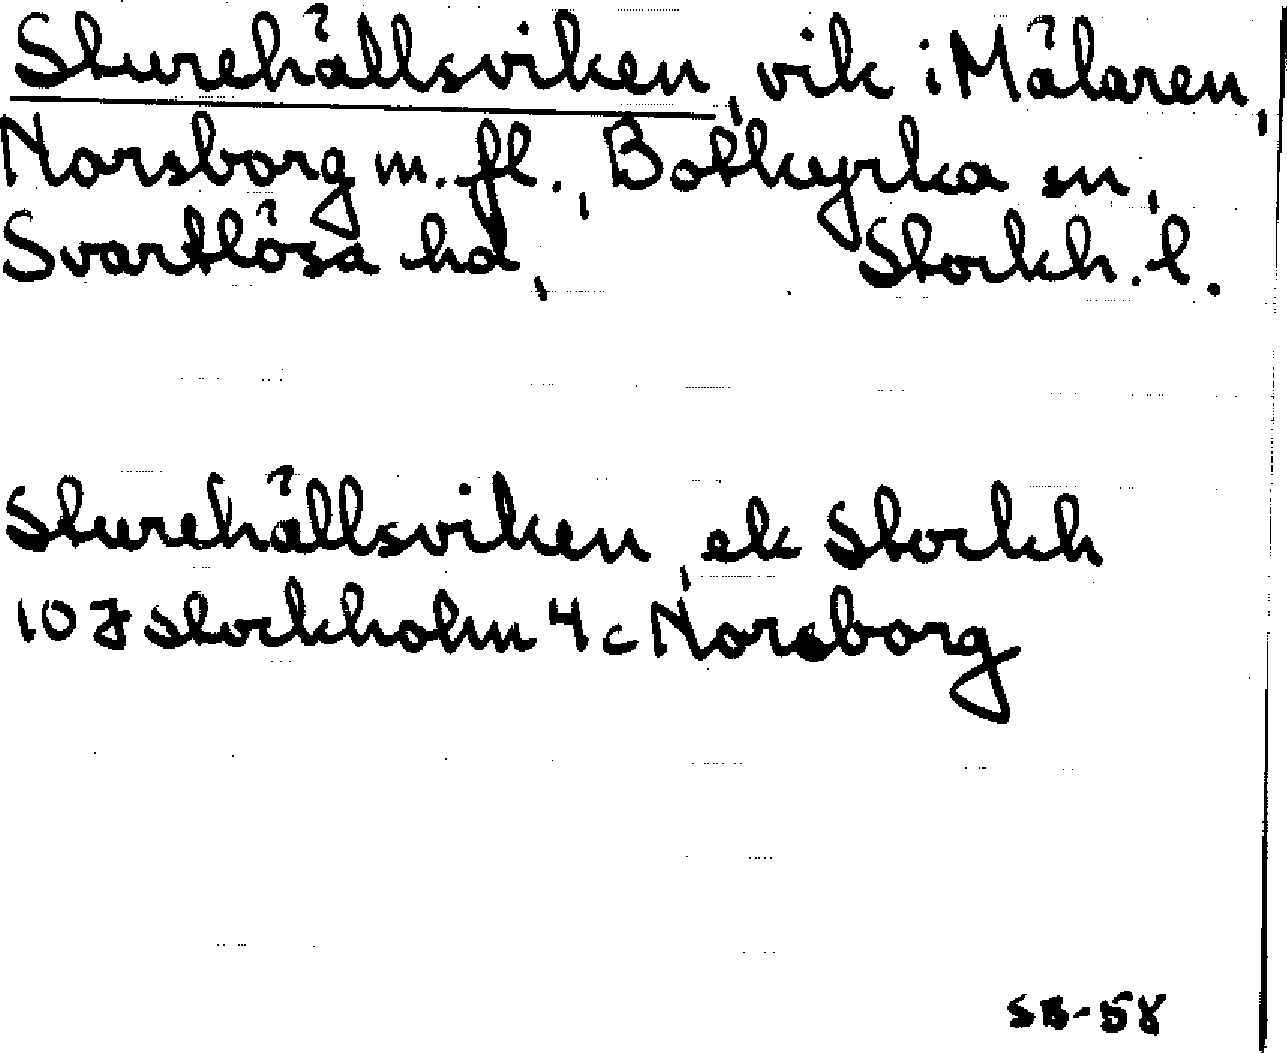 Sturehällsviken, vik i Mälaren,
Norsborg m. fl., Botkyrka sn,
Svartlösa hd, Stockh. l.
Sturehällsviken, ek Stockh
10J Stockholm 4c Norsborg
SB-58